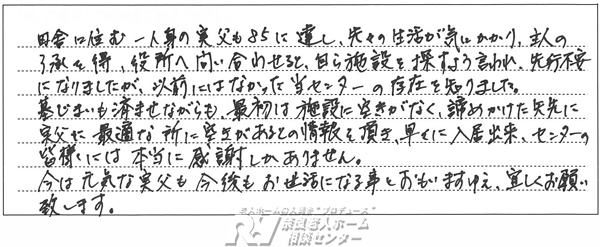 田舎に住む一人身の実父も85に達し、先々の生活が気にかかり、主人の
了承を得、役所へ問い合わせると、自ら施設を探すよう言われ、先行不安
になりましたが、以前にはなかった当センターの存在を知りました。
墓じまいも済ませながらも、最初は施設に空きがなく、諦めかけた矢先に
実父に最適な所に空きがあるとの情報を頂き、早々に入居出来、センターの
皆様には本当に感謝しかありません。
今は元気な実父も今後もお世話になる事とおもいますゆえ、宜しくお願い
致します。
老人ホームの入居を"プロデュース"
奈良老人ホーム
相談センター